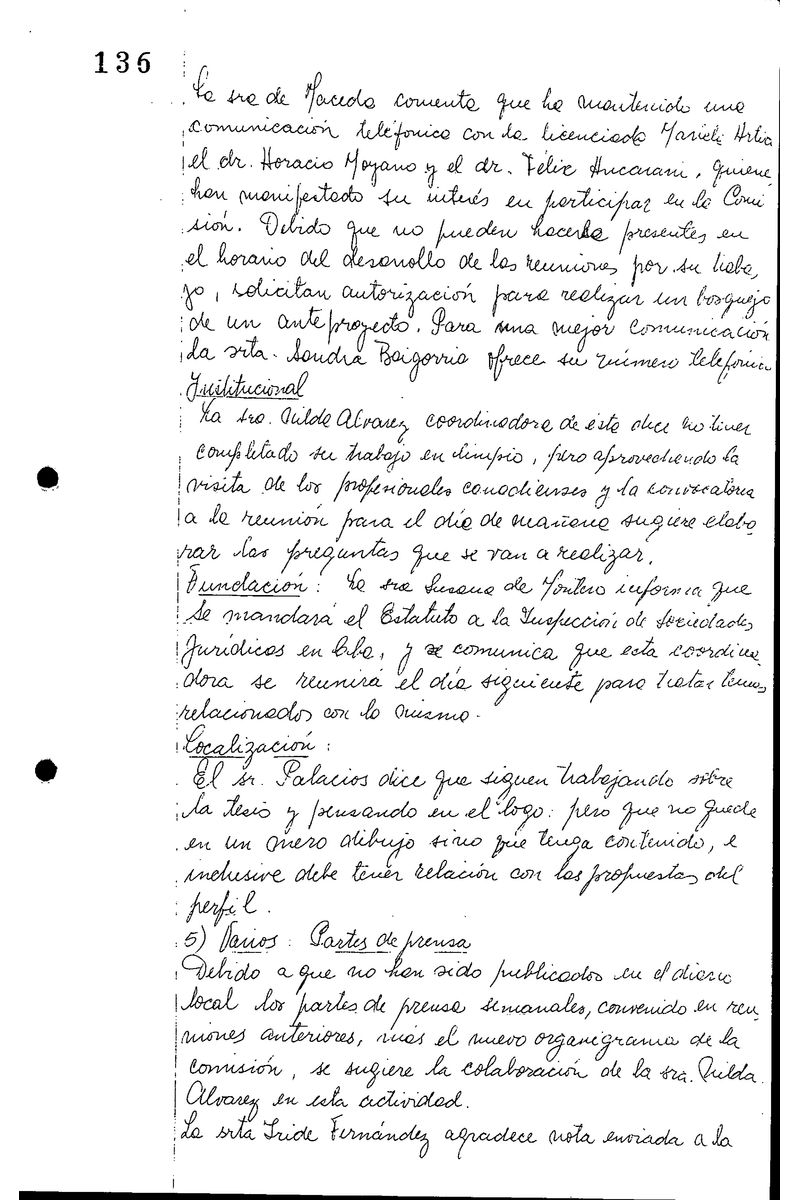 136
La sra de Maceda comenta que ha mantenido una
comunicación teléfonica con la licenciada Marieli
el dr. Horacio Moyano y el dr. Félix quiene
han manifestado su interés en participar en la Comi
sión. Debido que no pueden hacerse presentes en
el horario del desarrollo de las reuniones por su traba,
jo, solicitan autorización para realizar un bosquejo
de un anteproyecto. Para una mejor comunicación
la srta. Sandra Baigorria ofrece su número telefónico
Institucional
La sra. Nilda Alvarez coordinadora de ésta dice no tener
completado su trabajo en limpio, pero aprovechando la
visita de los profesionales canadienses y la convocatoria
a la reunión para el día de mañana sugiere elabo
rar las preguntas que se van a realizar.
Fundación: La sra Susana de Montero informa que
se mandará el Estatuto a la Inspección de Sociedades
Jurídicas en Cba, y se comunica que esta coordina
dora se reunirá el día siguiente para tratar temas
relacionados con la misma.
Localización:
El sr. Palacios dice que siguen trabajando sobre
la tesis y pensando en el logo: pero que no quede
en un mero dibujo sino que tenga contenido, e
inclusive debe tener relación con las propuestas del
perfil.
5) Varios: Partes de prensa
Debido a que no han sido publicados en el diario
local los partes de prensa semanales, convenido en reu
niones anteriores, más el nuevo organigrama de la
comisión, se sugiere la colaboración de la sra. Nilda
Alvarez en esta actividad.
La srta Iride Fernández agradece nota enviada a la